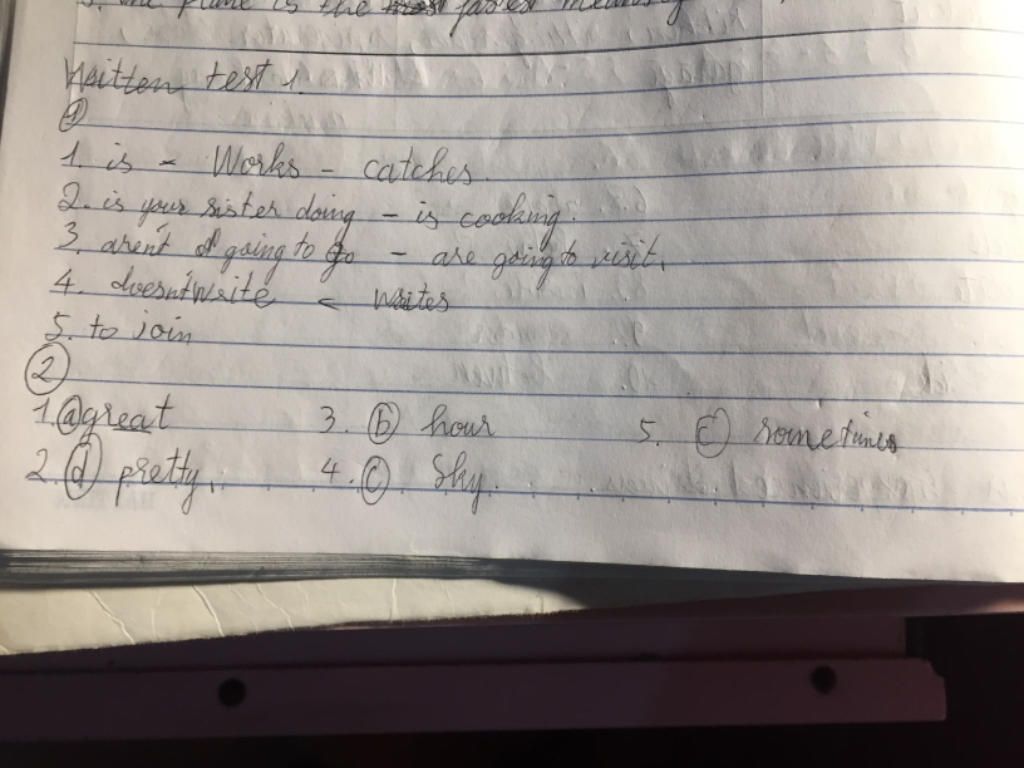 3. The plane is the fastest means of
Written test 1.
1
1. is - Works - catches.
2. is your sister doing - is cooking.
3. aren't going to go - are going to visit.
4. doesn't write - writes
5. to join
2
1. a great 3. b hour 5. c sometimes
2. d pretty. 4. c Sky.